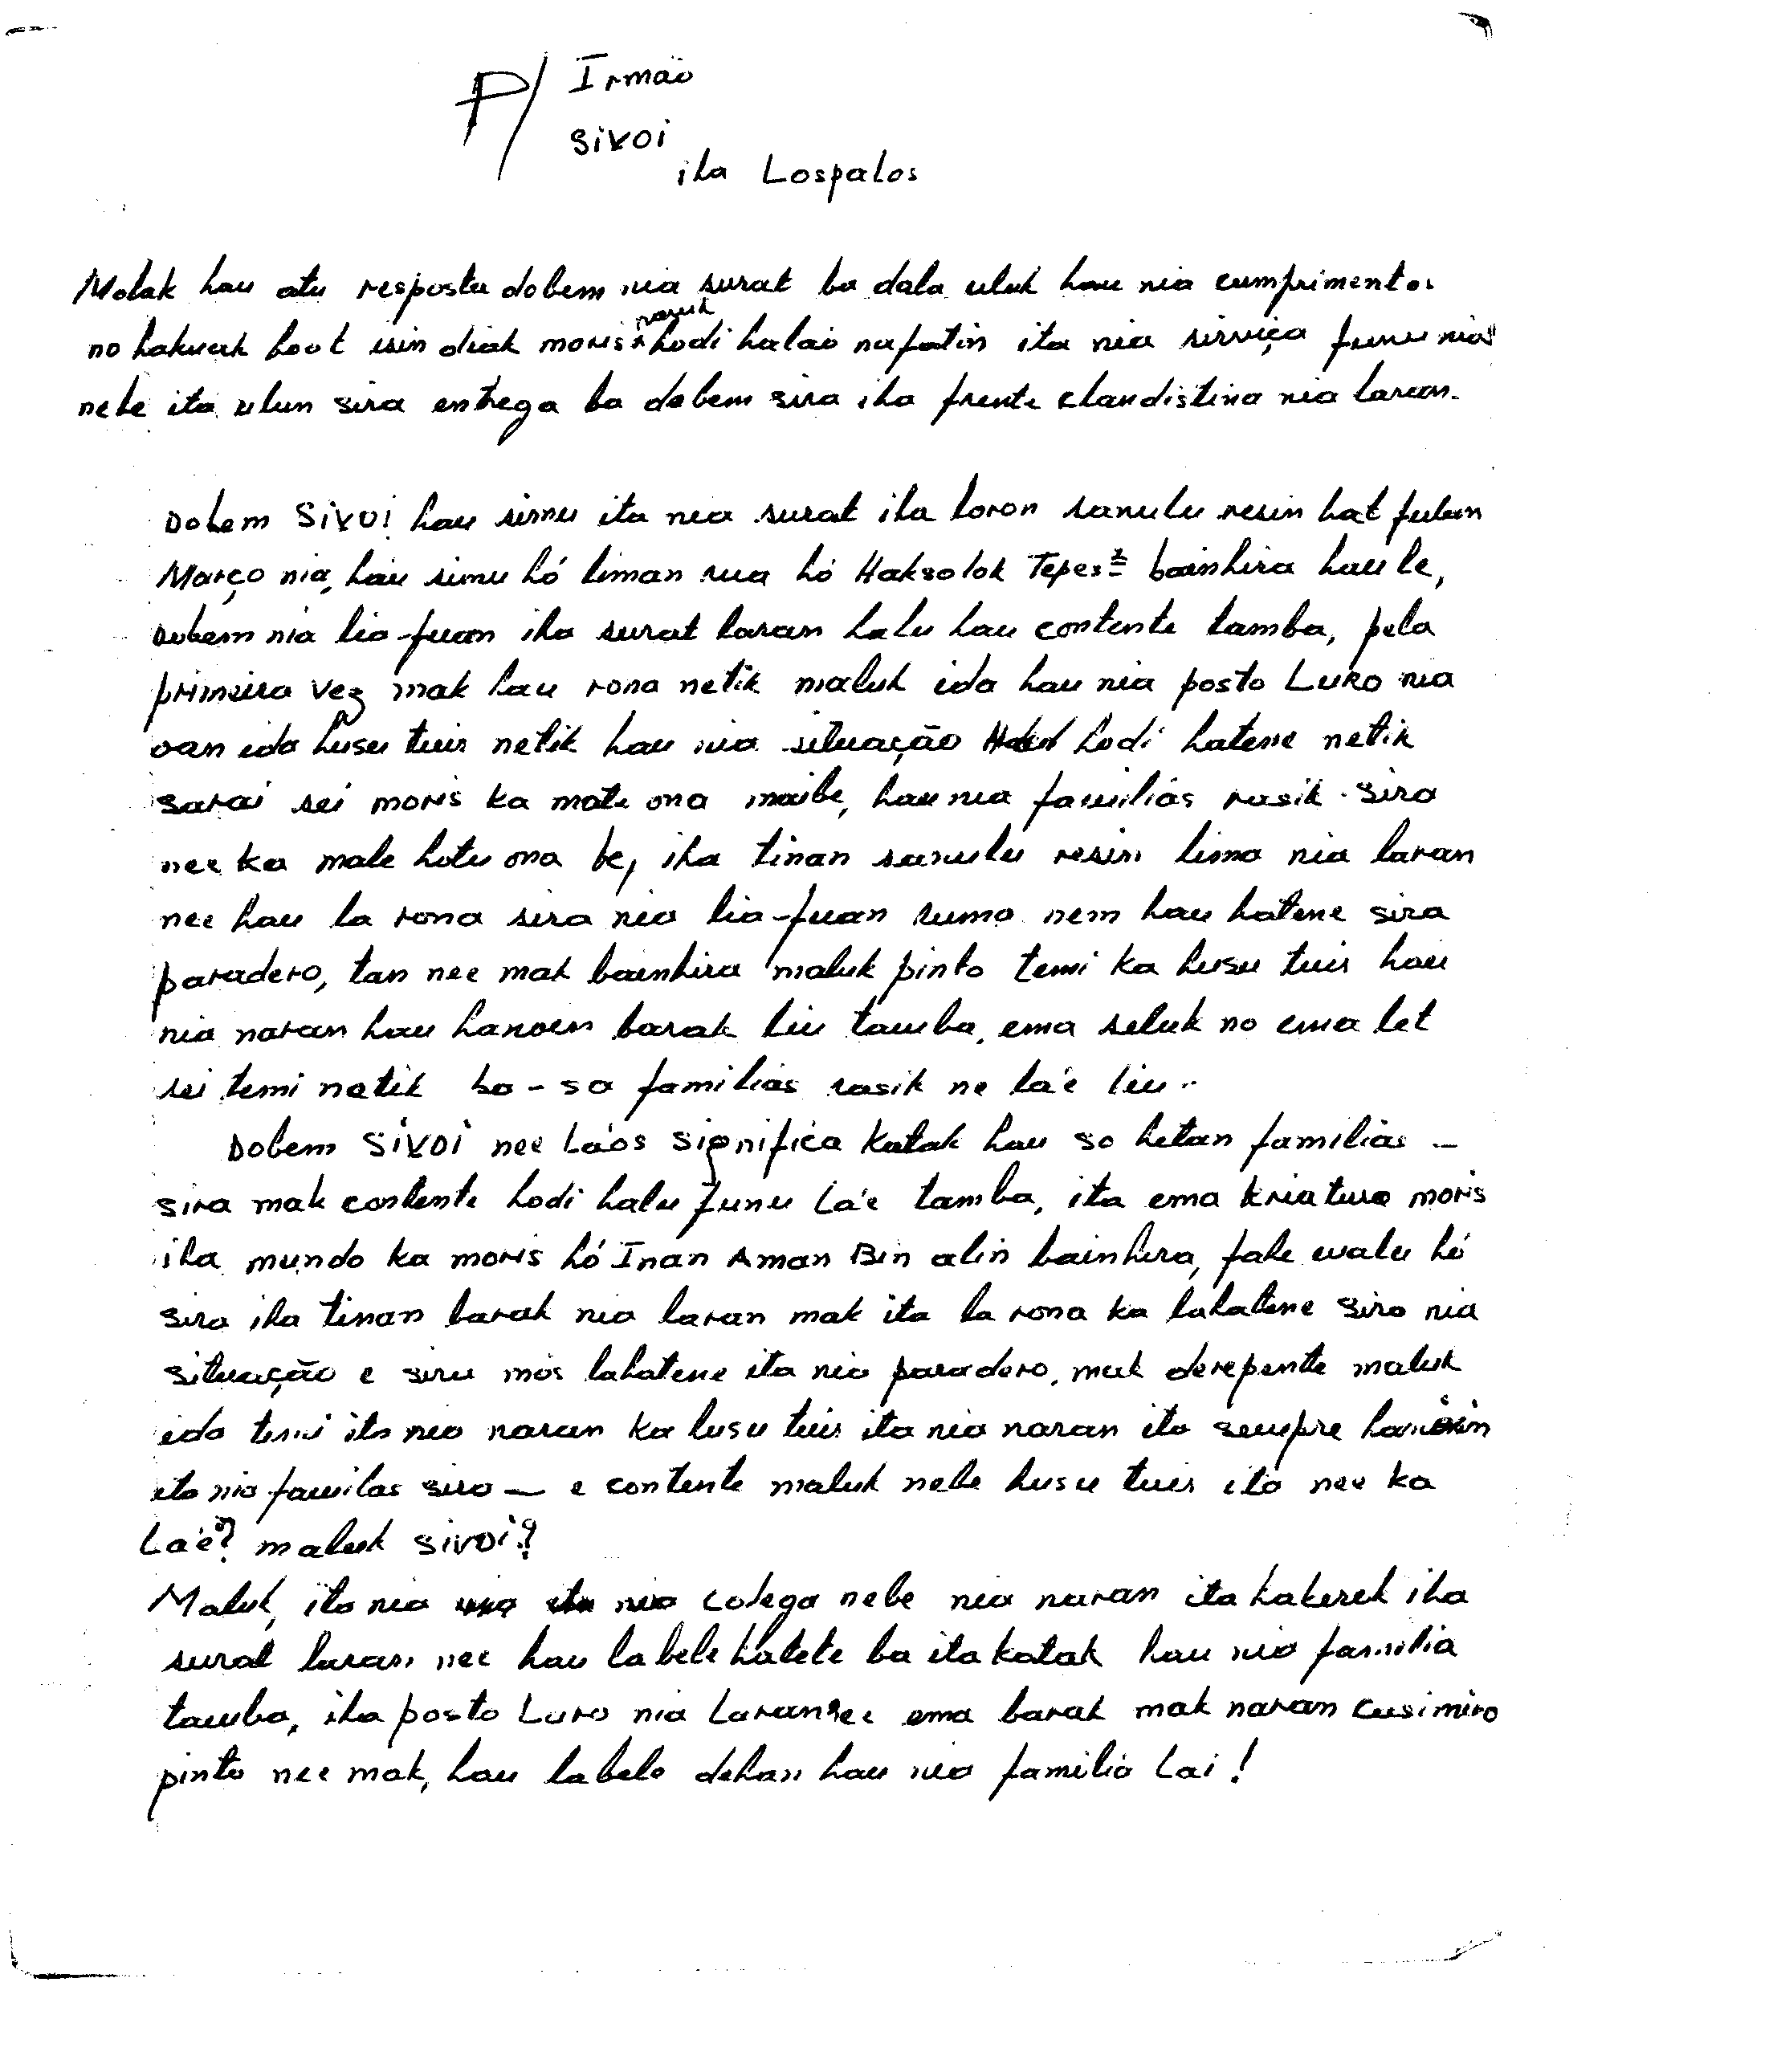 P/ Irmão
Sivoi
iha Lospalos
Molak hau atu resposta dobem nia surat ba dala uluk hau nia cumprimentos
naruk
no hakuak boot isin diak moris hodi halao nafatin ita nia serviça funu nia
nebe ita ulun sira entrega ba dobem sira iha frente clandistina nia laran.
Dobem SiVOi hau simu ita nia surat iha loron sanulu resin hat fulan
Março nia, hau simu hó liman rua hó Haksolok Tepes² bainhira hau le,
dobem nia lia-fuan iha surat laran halu hau contente tamba, pela
primeira vez mak hau rona netik maluk ida hau nia posto LURO nia
oan ida husu tuir netik hau nia situação hodi hatene netik
sarai sei moris ka mate ona maibe, hau nia familias rasik sira
nee ka mate hotu ona be, iha tinan sanulu resin lima nia laran
nee hau la rona sira nia lia-fuan ruma nem hau hatene sira
paradero, tan nee mak bainhira maluk pinto temi ka husu tuir hau
nia naran hau hanoin barak liu tamba, ema seluk no ema let
sei temi netik sa-sa familias rasik ne la'e liu..
Dobem SiVOi nee La'os significa Katak hau so hetan familias -
sira mak contente hodi halu funu La'e tamba, ita ema kriatura moris
iha mundo ka moris hó Inan Aman Bin alin bainhira, fahe malu hó
sira iha tinan barak nia laran mak ita la rona ka lahatene sira nia
situação e sira mós lahatene ita nia paradero, mak derepente maluk
ida temi ita nia naran ka husu tuir ita nia naran ita sempre hanoin
ita nia familas sira — e contente maluk nebe husu tuir ita nee ka
La'e? maluk sivoi?
Maluk, ita nia colega nebe nia naran ita hakerek iha
surat laran nee hau labele hatete ba ita katak hau nia familia
tamba, iha posto Luro nia Laran nee ema barak mak naran casimiro
pinto nee mak, hau labele dehan hau nia familia Lai!